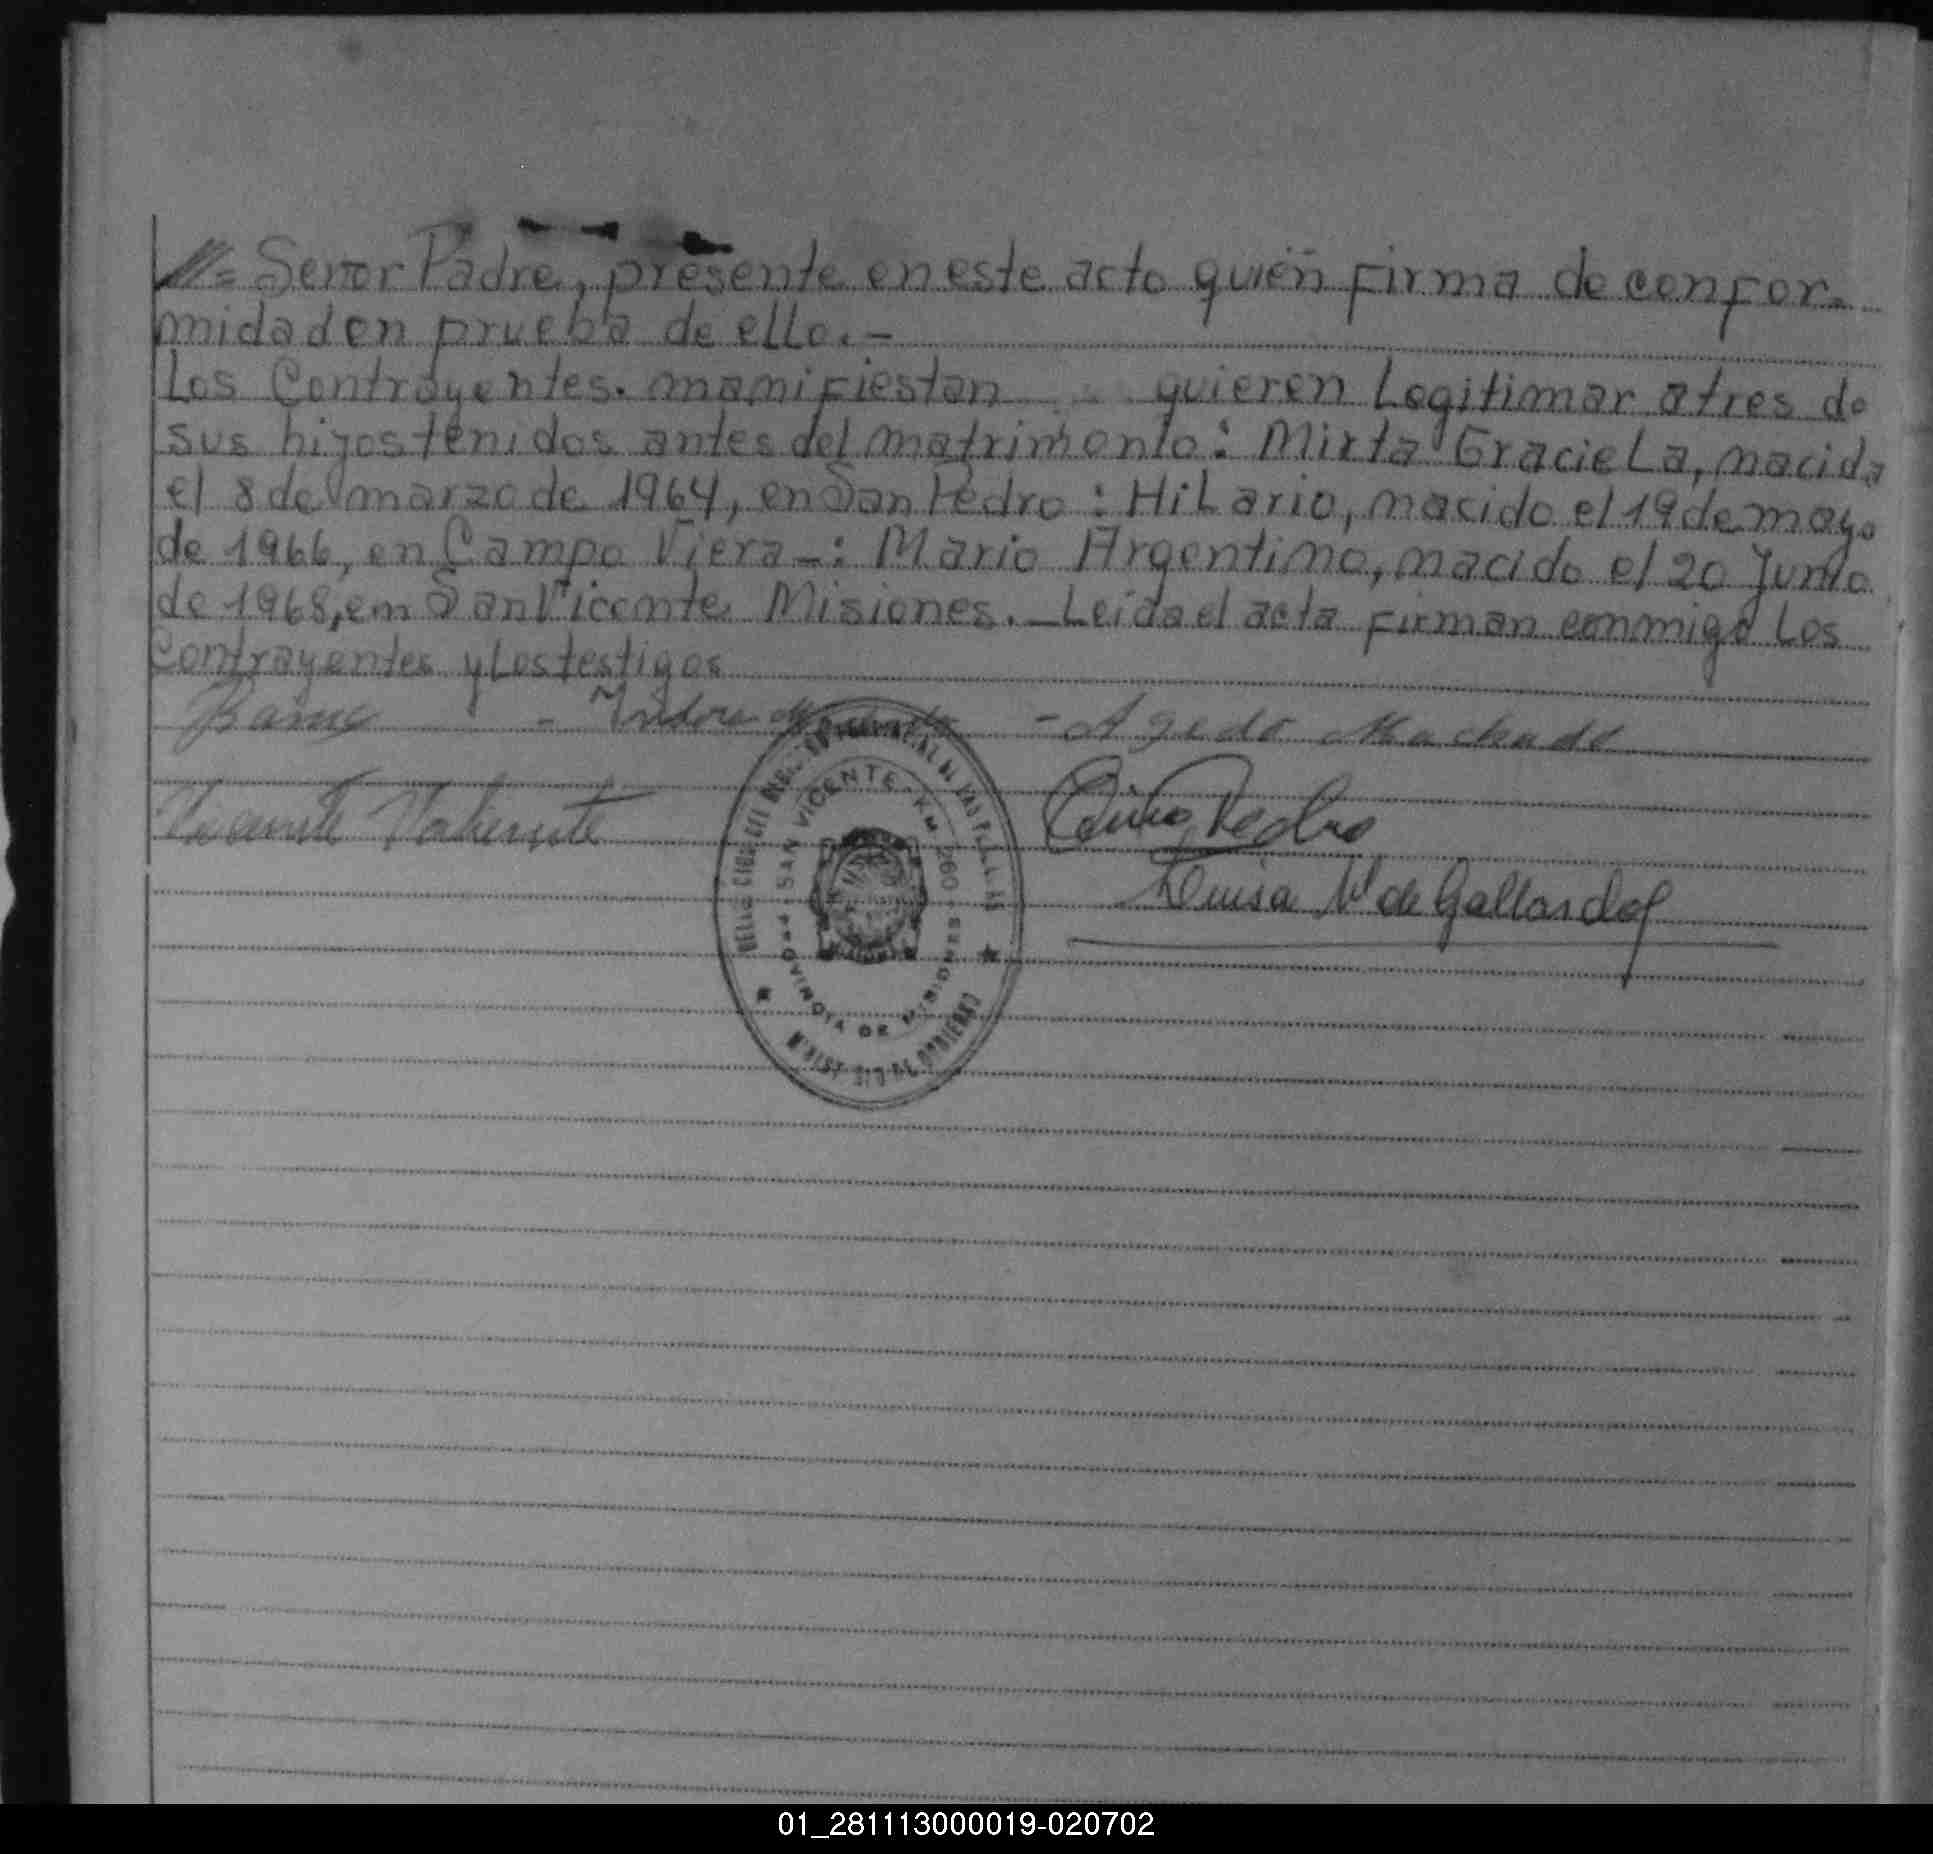 Señor Padre, presente en este acto quién firma de confor-
midad en prueba de ello.-
Los Contrayentes. manifiestan quieren Legitimar a tres de
sus hijos tenidos antes del matrimonio: Mirta Graciela, nacida
el 8 de marzo de 1964, en San Pedro: Hilario, nacido el 19 de mayo
de 1966, en Campo Viera-: Mario Argentino, nacido el 20 Junio
de 1968, en San Vicente Misiones.- Leida el acta firman conmigo Los
Contrayentes y Los testigos
- Machado - Agedo Machado
Vicente Pedro
SAN VICENTE - KM 260 - MISIONES
PROVINCIA DE MISIONES
MINISTERIO DE GOBIERNO
Luisa V. de Gallardo
01_281113000019-020702